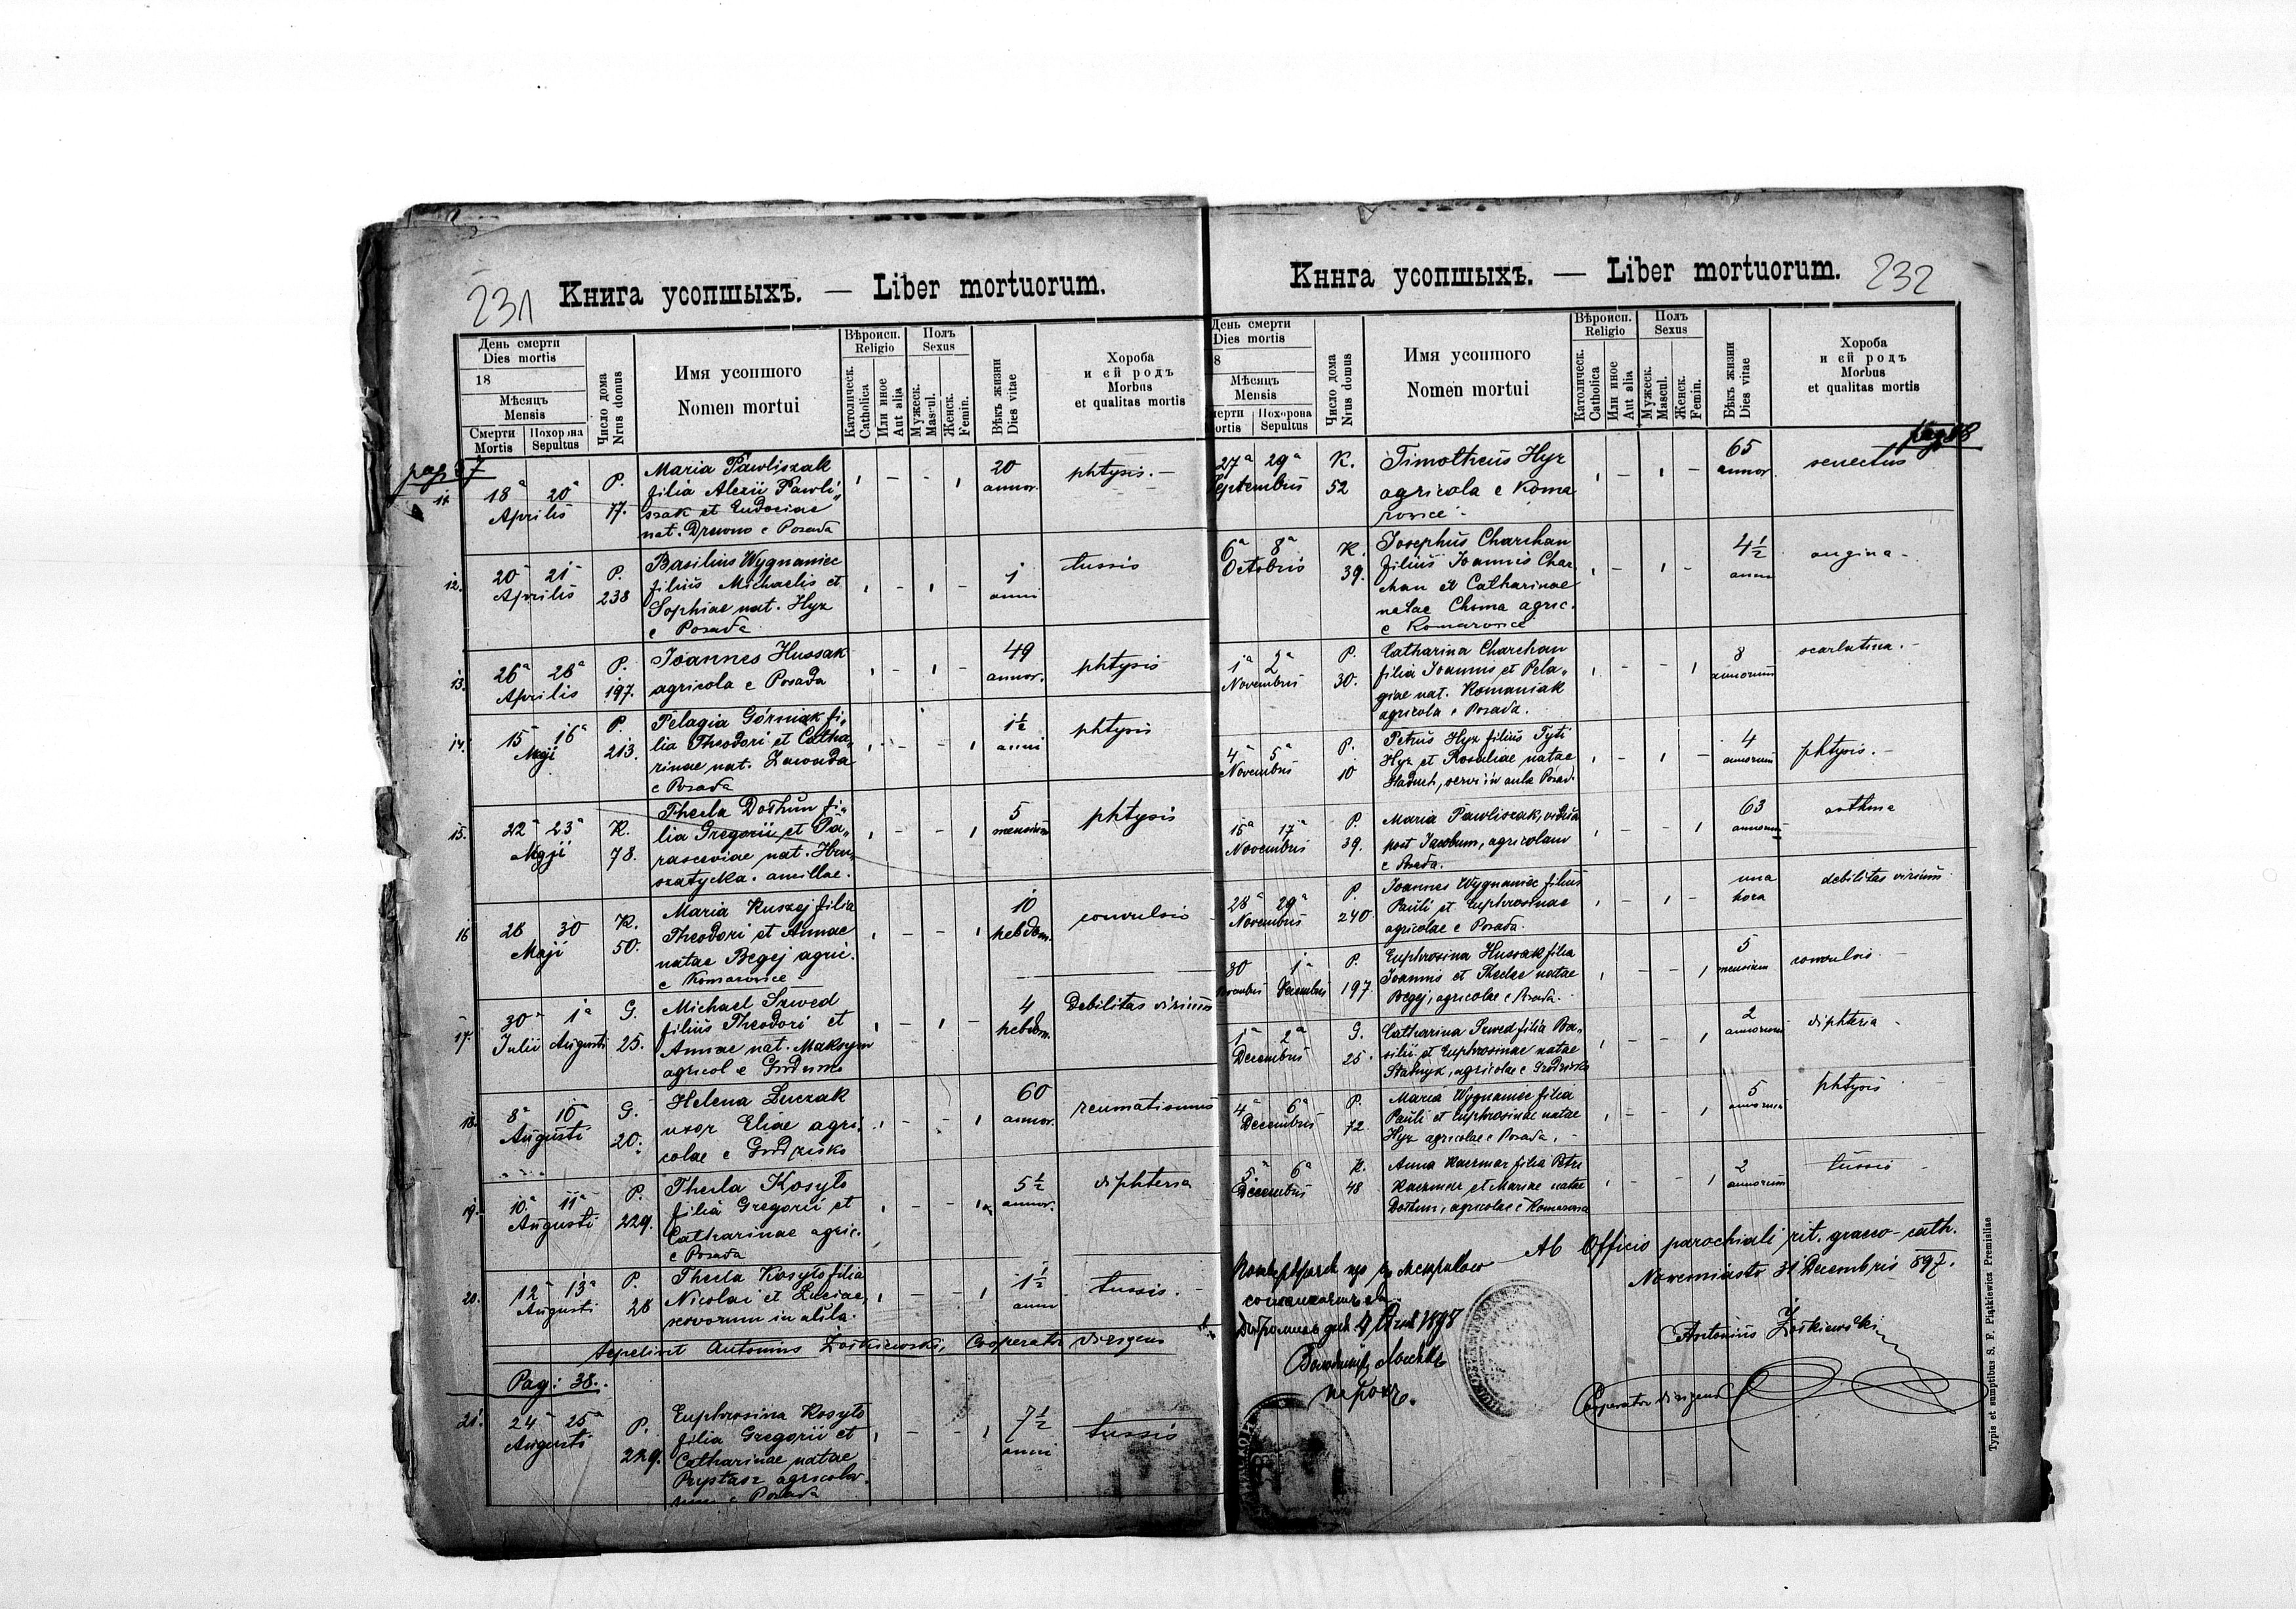 231
Книга усопшыхъ. — Liber mortuorum.
День смерти
Dies mortis
18
Мѣсяць
Mensis
Смерти
Mortis
Похорона
Sepultus
Число дома
Nrus domus
Имя усопшого
Nomen mortui
Вѣроисп.
Religio
Католическ.
Catholica
Или иное
Aut alia
Полъ
Sexus
Мужеск.
Mascul.
Женск.
Femin.
Вѣкъ жизни
Dies vitae
Хороба
и ей родъ
Morbus
et qualitas mortis
pag 37
11. 18ª 20ª Aprilis P. 77.
Maria Pawliszak
filia Alexii Pawli„
szak et Eudociae
nat. Drewno e Posada
20 annor. phtysis. –
12. 20 21 Aprilis P. 238
Basilius Wygnaniec
filius Michaelis et
Sophiae nat. Hyz
e Posada
1 anni tussis
13. 26ª 28ª Aprilis P. 197.
Joannes Hussak
agricola e Posada
49 annor. phtysis
14. 15 16ª Maji P. 213.
Pelagia Górniak fi„
lia Theodori et Catha„
rinae nat. Zawada
e Posada
1½ anni phtysis
15. 22 23ª Maji K. 78.
Thecla Dothun fi„
lia Gregorii et Pa„
rasceviae nat.
ancillae.
5 mensium phtysis
16 28 30 Maji K. 50.
Maria Kuszej filia
Theodori et Annae
natae Begej agric.
e Komarowice
10 hebdom. convulsio
17. 30ª 1ª Julii Augusti G. 25.
Michael Szwed
filius Theodori et
Annae nat. Maksym
agricol e
4 hebdom. Debilitas virium
18. 8ª 10 Augusti G. 20.
Helena Łuczak
uxor Eliae agri„
colae e Grodzisko
60 annor. reumatismus
19. 10. 11ª Augusti P. 229.
Thecla Kosyło
filia Gregorii et
Catharinae agric.
e Posada
5½ annor. diphteria
20. 12 13ª Augusti P. 28
Thecla Kosyło filia
Nicolai et Luciae,
servorum in aula.
1½ anni tussis. –
sepelivit Antonius Żołkiewski, Cooperator dirigens
Pag: 38.
21. 24 25ª Augusti P. 229.
Euphrosina Kosyło
filia Gregorii et
Catharinae natae
Prystasz agricola„
rum e Posada
7½ anni tussis
Кннга усопшыхъ. — Liber mortuorum.
232
День смерти
Dies mortis
8
Мѣсяць
Mensis
мерти
ortis
Похорона
Sepultus
Число дома
Nrus domus
Имя усопшого
Nomen mortui
Вѣроисп.
Religio
Католическ.
Catholica
Или иное
Aut alia
Полъ
Sexus
Мужеск.
Mascul.
Женск.
Femin.
Вѣкъ жизни
Dies vitae
Хороба
и ей родъ
Morbus
et qualitas mortis
27ª 29ª Septembris K. 52
Timotheus Hyz
agricola e Koma
rowice
65 annor. senectus
6ª 8ª Octobris K. 39.
Josephus Charchan
filius Joannis Char
chan et Catharinae
natae Choma agric.
e Komarowice
4½ anni angina –
1ª 2ª Novembris P. 30.
Catharina Charchan
filia Joannis et Pela„
giae nat. Romaniak
agricola e Posada.
8 annorum scarlatina. –
4ª 5ª Novembris P. 10
Petrus Hyz filius Tyti
Hyz et Rosaliae natae
Haduch, servi in aula Posad.
4 annorum phtysis. –
15ª 17ª Novembris P. 39.
Maria Pawliszak, vidua
post Jacobum, agricolam
e Posada.
63 annorum asthma
28ª 29ª Novembris P. 240
Joannes Wygnaniec filius
Pauli et Euphrosinae
agricolae e Posada.
una hora debilitas virium
30 1ª Novembris Decembris P. 197
Euphrosina Hussak filia
Joannis et Theclae natae
Begej, agricolae e Posada.
5 mensium convulsio
1ª 2ª Decembris G. 25
Catharina Szwed filia Ba„
silii et Euphrosinae natae
agricolae e Grodzisko
2 annorum diphteria
4ª 6ª Decembris P. 72
Maria Wygnaniec filia
Pauli et Euphrosinae natae
Hyz agricolae e Posada. –
5 annorum phtysis
5ª 6ª Decembris K. 48
Anna Kaczmar filia Petri
Kaczmar et Mariae natae
Dothun, agricolae e Komarowice
2 annorum tussis
Ab Officio parochiali rit. graeco-cath.
Nowemiasto 31 Decembris 897.
Antonius Żołkiewski
Cooperator dirigens
1898
Typis et sumptibus S. F. Piątkiewicz Premisliae